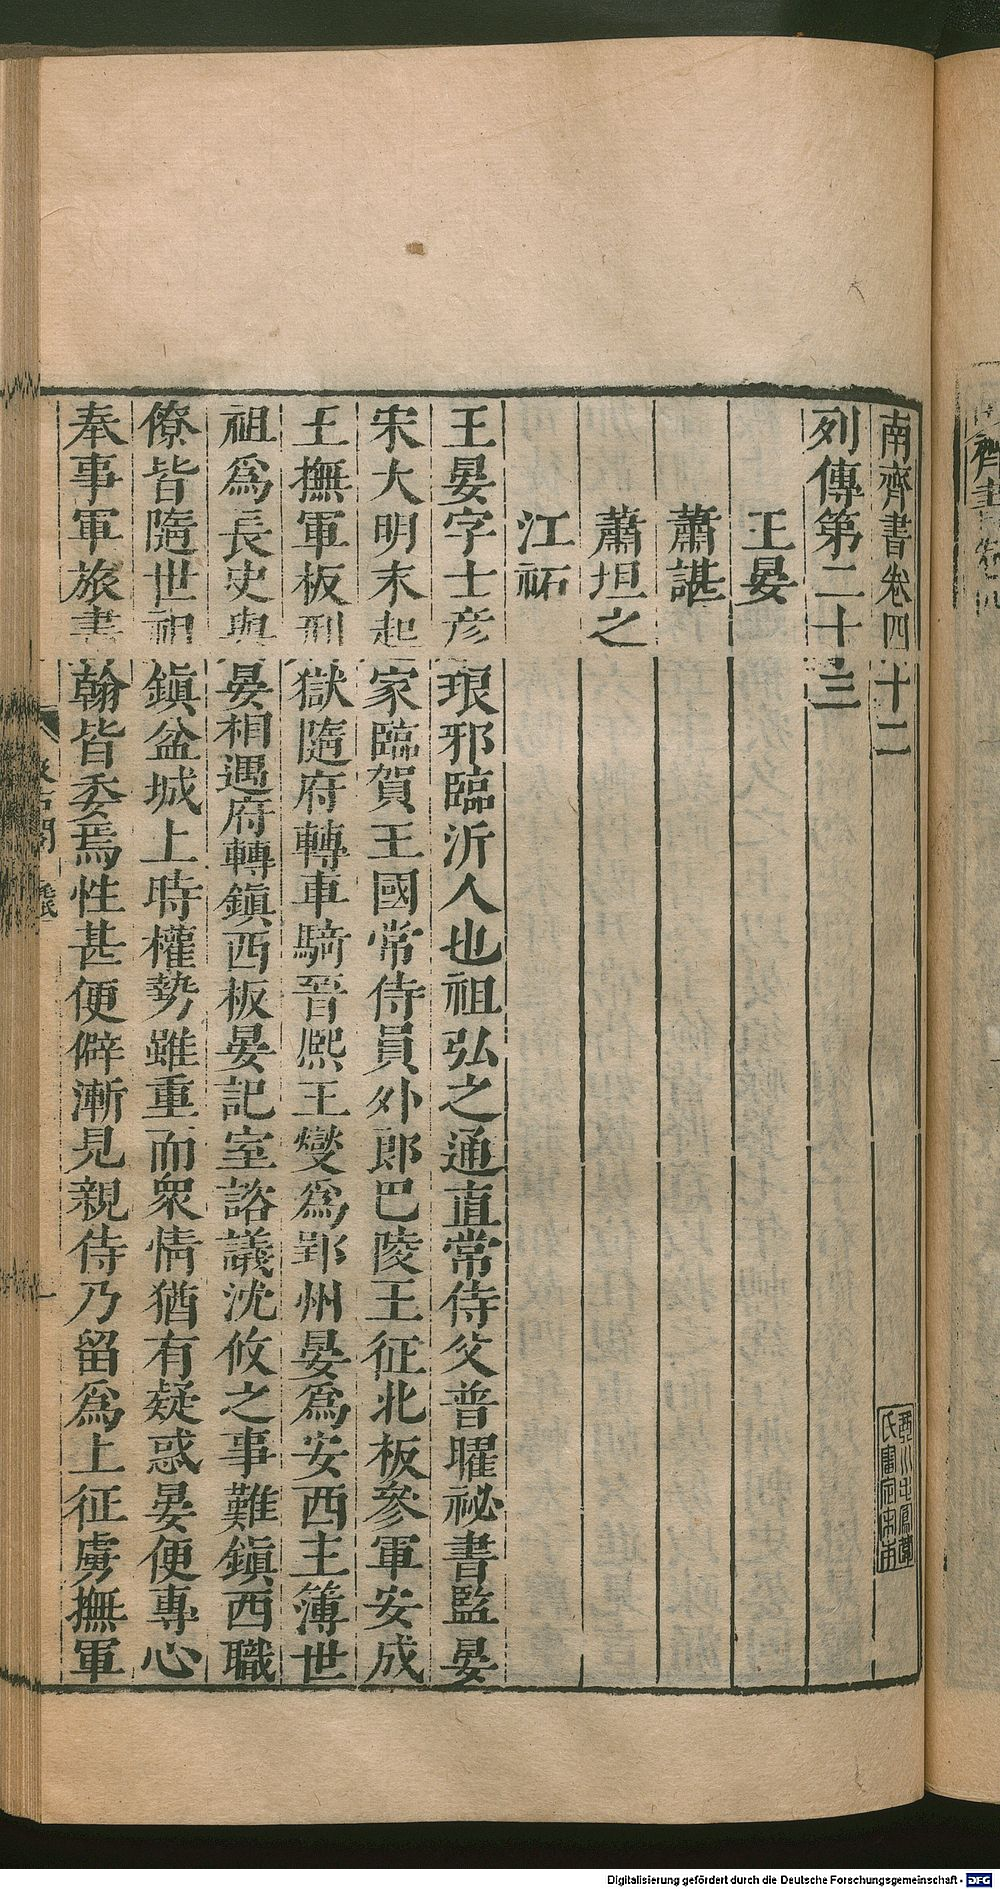 南齊書卷四十二
列傳第二十三
王晏
蕭諶
蕭坦之
江祏
王晏字士彥琅邪臨沂人也祖弘之通直常侍父普曜祕書監晏
宋大明末起家臨賀王國常侍員外郎巴陵王征北板參軍安成
王撫軍板刑獄隨府轉車騎晉熙王燮爲郢州晏爲安西主簿世
祖爲長史與晏相遇府轉鎮西板晏記室諮議沈攸之事難鎮西職
僚皆隨世祖鎮盆城上時權勢雖重而衆情猶有疑惑晏便專心
奉事軍旅書翰皆委焉性甚便僻漸見親侍乃留爲上征虜撫軍
Digitalisierung gefördert durch die Deutsche Forschungsgemeinschaft - DFG